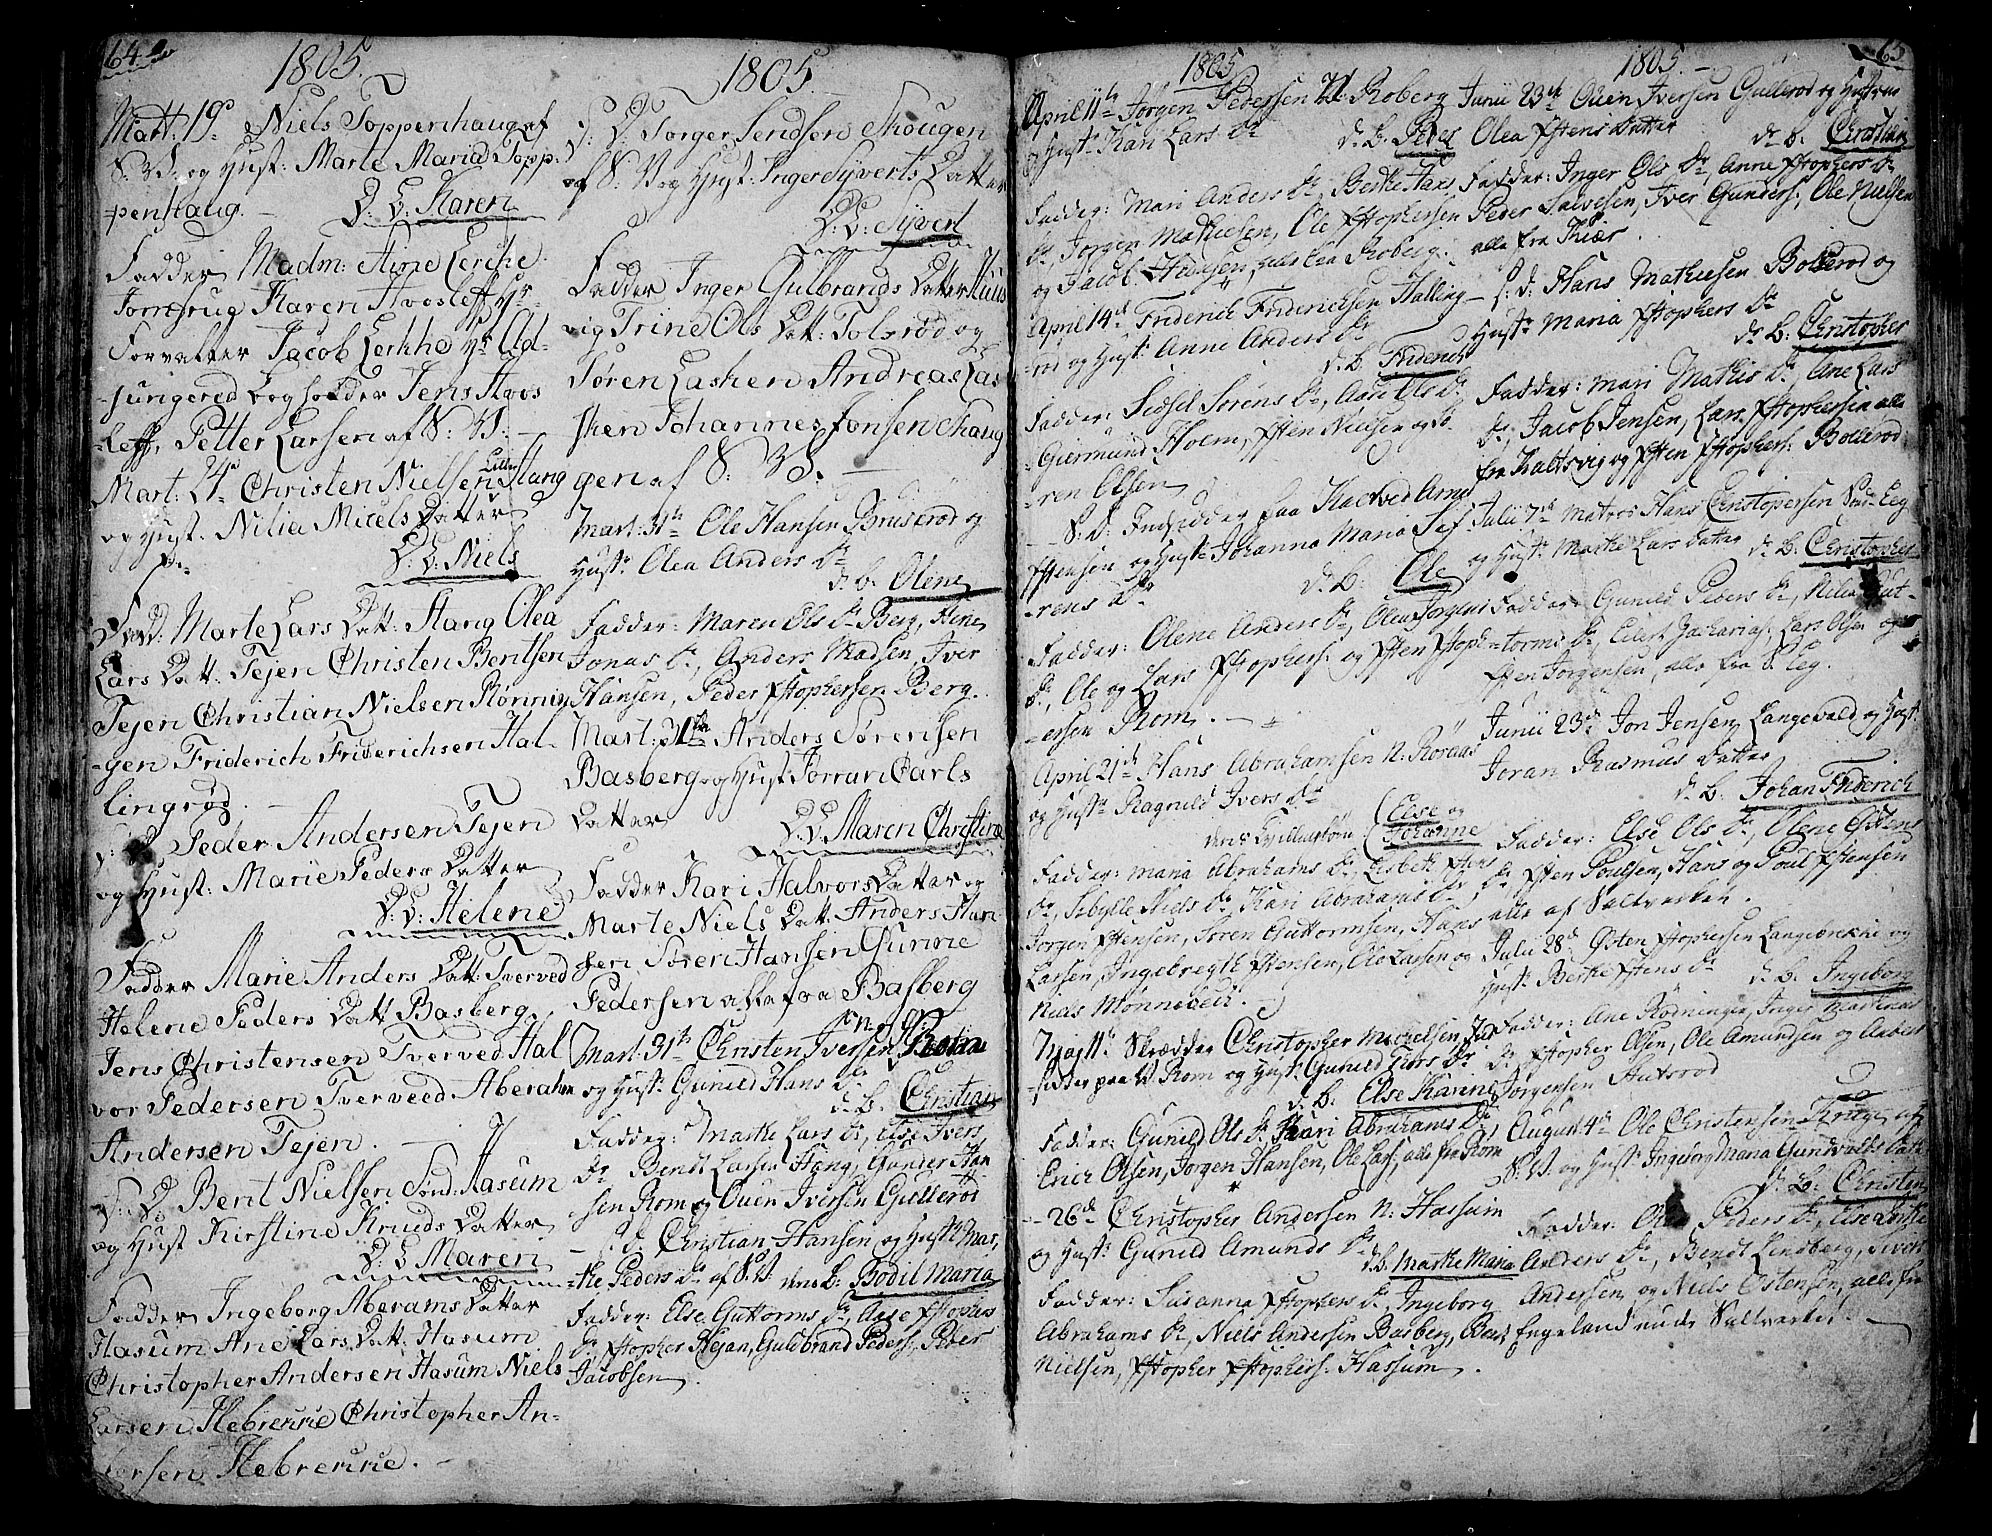 64.
1805.
Mart: 19de Niels Toppenhaug af
S: V: og Hust: Marte Maria Topp-
penhaug.
D: B: Karen
Fadder Madm: Aine Lerche
Jomfrue Karen Hvosleff Hr
Forvalter Jacob Lerkhe Hr Ad-
jungered bogholder Jens Hvos
leff, Petter Larsen af S: V:
Mart: 24de Christen Nielsen Lille Hang
og Hust: Nilia Micels Datter
D: B: Niels
Fadd: Marte Lars Datt: Hang Olea
Lars Datt: Tejen Christen Bentsen
Tejen Christian Nielsen Rønning
gen Friderich Friderichsen Hal-
lingrød.
S: D: Peder Andersen Tejen
og Hust: Marie Peders Datter
D: B: Helene
Fadder Marie Anders Datt: Tverved
Helene Peders Datt: Basberg,
Jens Christensen Tverved Hal
vor Pedersen Tverveed Aberahm
Andersen Tejen.
S: D: Bent Nielsen Sønd: Aasum
og Hust Kirstine Knuds Datter
D: B Maren
Fadder Ingeborg Aberams Datter
Hasum Ane Lars Datt: Hasum
Christopher Andersen Hasum Niels
Larsen Hebrenne Christopher An-
dersen Hebrenne.
1805.
S: D: Torger Sendsen Skougen
af S: V og Hust: Inger Syverts Datter
D: B: Syvert
Fadder Inger Gulbrands Datter Huus
vig Trine Ols Datt: Tolsrød og
Søren Lasken Andreas Las
sken Johannes Jonsen Skaug
gen af S: V.
Mart: 31te Ole Hansen Bruserød og
Hust: Olea Anders Dr
d: b: Olene
Fadder: Maren Ols Dr Berg, Aine
Jonas Dr, Anders Madsen, Iver
Hansen, Peder Xstophersen Berg.
Mart: 31te Anders Sørensen
Basberg og Hust Jorran Carls
Datter
D: B: Maren Christine
Fadder Kari Halvors Datter og
Marte Niels Datt: Anders Han
sen Søren Hansen Gunne
Pedersen alle fra Basberg
Mart: 31te Christen Iversen
og Hust: Gunild Hans Dr
d: b: Christian
Fadder: Marthe Lars Dr, Else Ivers
Dr Bendt Larsen Hang, Gunder Han
sen Rom og Ouen Iversen Gullerød
S: d: Christian Hansen og Hust: Mar-
the Peders Dr af S: V deres b: Bodil Maria
Fadder: Else Guttorms Dr, Aase Xstophers
Dr, Xstopher Hejan, Guldbrand Peders:, Peder
Jacobsen.
1805
April 11te Jørgen Pedersen V: Roberg
og Hust: Kari Lars Dr
d: B: Peder
Fadder: Mari Anders Dr, Berthe Hans
Dr, Jorgen Mathiesen, Ole Xstophersen
og Jacob Hansen, alle fra Roberg.
April 14de Friderich Friderichsen Halling-
rød og Hust: Anne Anders Dr
d: B: Friderich
Fadder: Sidsel Sorens Dr, Anne Ols Dr
Giermund Holm, Xsten Nielsen og So-
ren Olsen
S: D: Indsidder paa Kactved Arne
Xstensen og Hust: Johanna Maria Sef
rens Dr
d: B: Ole
Fadder: Olene Anders Dr, Olea Jorgens
Dr, Ole og Lars Xstophers: og Xsten Xstoph-
ersen Rom.
April 21de Hans Abrahamsen N: Roraas
og Hust: Ragnild Ivers Dr
deres Tvillingbørn Else og Johanne
Fadder: Maria Abrahams Dr, Lisbeth Xstens
Dr, Sebylle Niels Dr, Kari Abrahams Dr
Jorgen Xstensen, Søren Guttormsen, Hans
Larsen, Ingebregth Xstensen, Ole Larsen og
Niels Mønnebeck.
Maj 11te Skrædder Christopher Michelsen, Ind
sidder paa V: Rom og Hust: Gunild Lars Dr
d: b: Else Karine
Fadder: Gunild Ols Dr, Kari Abrahams Dr,
Erich Olsen, Jorgen Hansen, Ole Lars:, alle fra Rom
26de Christopher Andersen N: Hassum
og Hust: Gunild Amunds Dr
d: b: Marthe Maria
Fadder: Susanna Xstophers Dr, Ingeborg
Abrahams Dr, Niels Andersen Basberg, Bent
Nielsen, Xstopher Xstophers: Hassum.
65
1805.
Junii 23de Ouen Iversen Gullerod og Hustrue
Olea Xstens Datter
d: b: Christian
Fadder: Inger Ols Dr, Anne Xstophers Dr
Peder Salvesen, Iver Gunders:, Ole Nielsen
alle fra Kiær.
S: d: Hans Mathiesen Bollerod og
Hust: Maria Xstophers Dr
d: b: Christopher
Fadder: Mari Mathis Dr, Ane Lars
Dr, Jacob Jensen, Lars Xstophersen alle
fra Kaltsvig og Xsten Xstophers: Bollerod
Julii 7de Matros Hans Christopersen Sønd: Eeg
og Hust: Marthe Lars Datter d: b: Christopher
Fadder: Gunild Peders Dr, Nilia Gut-
torms Dr, Eilert Zacharias:, Lars Olsen og
Xsten Jorgensen, alle fra S: Eeg.
Junii 23de Jon Jensen Langevald og Hust:
Joran Rasmus Datter
d: b: Johan Friderich
Fadder: Else Ols Dr, Olene Østens
Dr, Xsten Poulsen, Hans og Poul Xstensen
alle af Saltverken.
Julii 28de Østen Xstophersen Langeønskie og
Hust: Berthe Xstens Dr
d: b: Ingeborg
Fadder: Ane Rødningen, Inger Mortens
Dr, Xstopher Olsen, Ole Amundsen og Anders
Jorgensen Stutsrod
August 4de Ole Christensen Krage af
S: V. og Hust: Ingeborg Maria Gundvalds Datt
d: b: Christen
Fadder: Olea Peders Dr, Else Sophie
Anders Dr, Bendt Lindberg, Sivert
Andersen og Niels Ostensen, alle fra
Engeland under Saltverket.